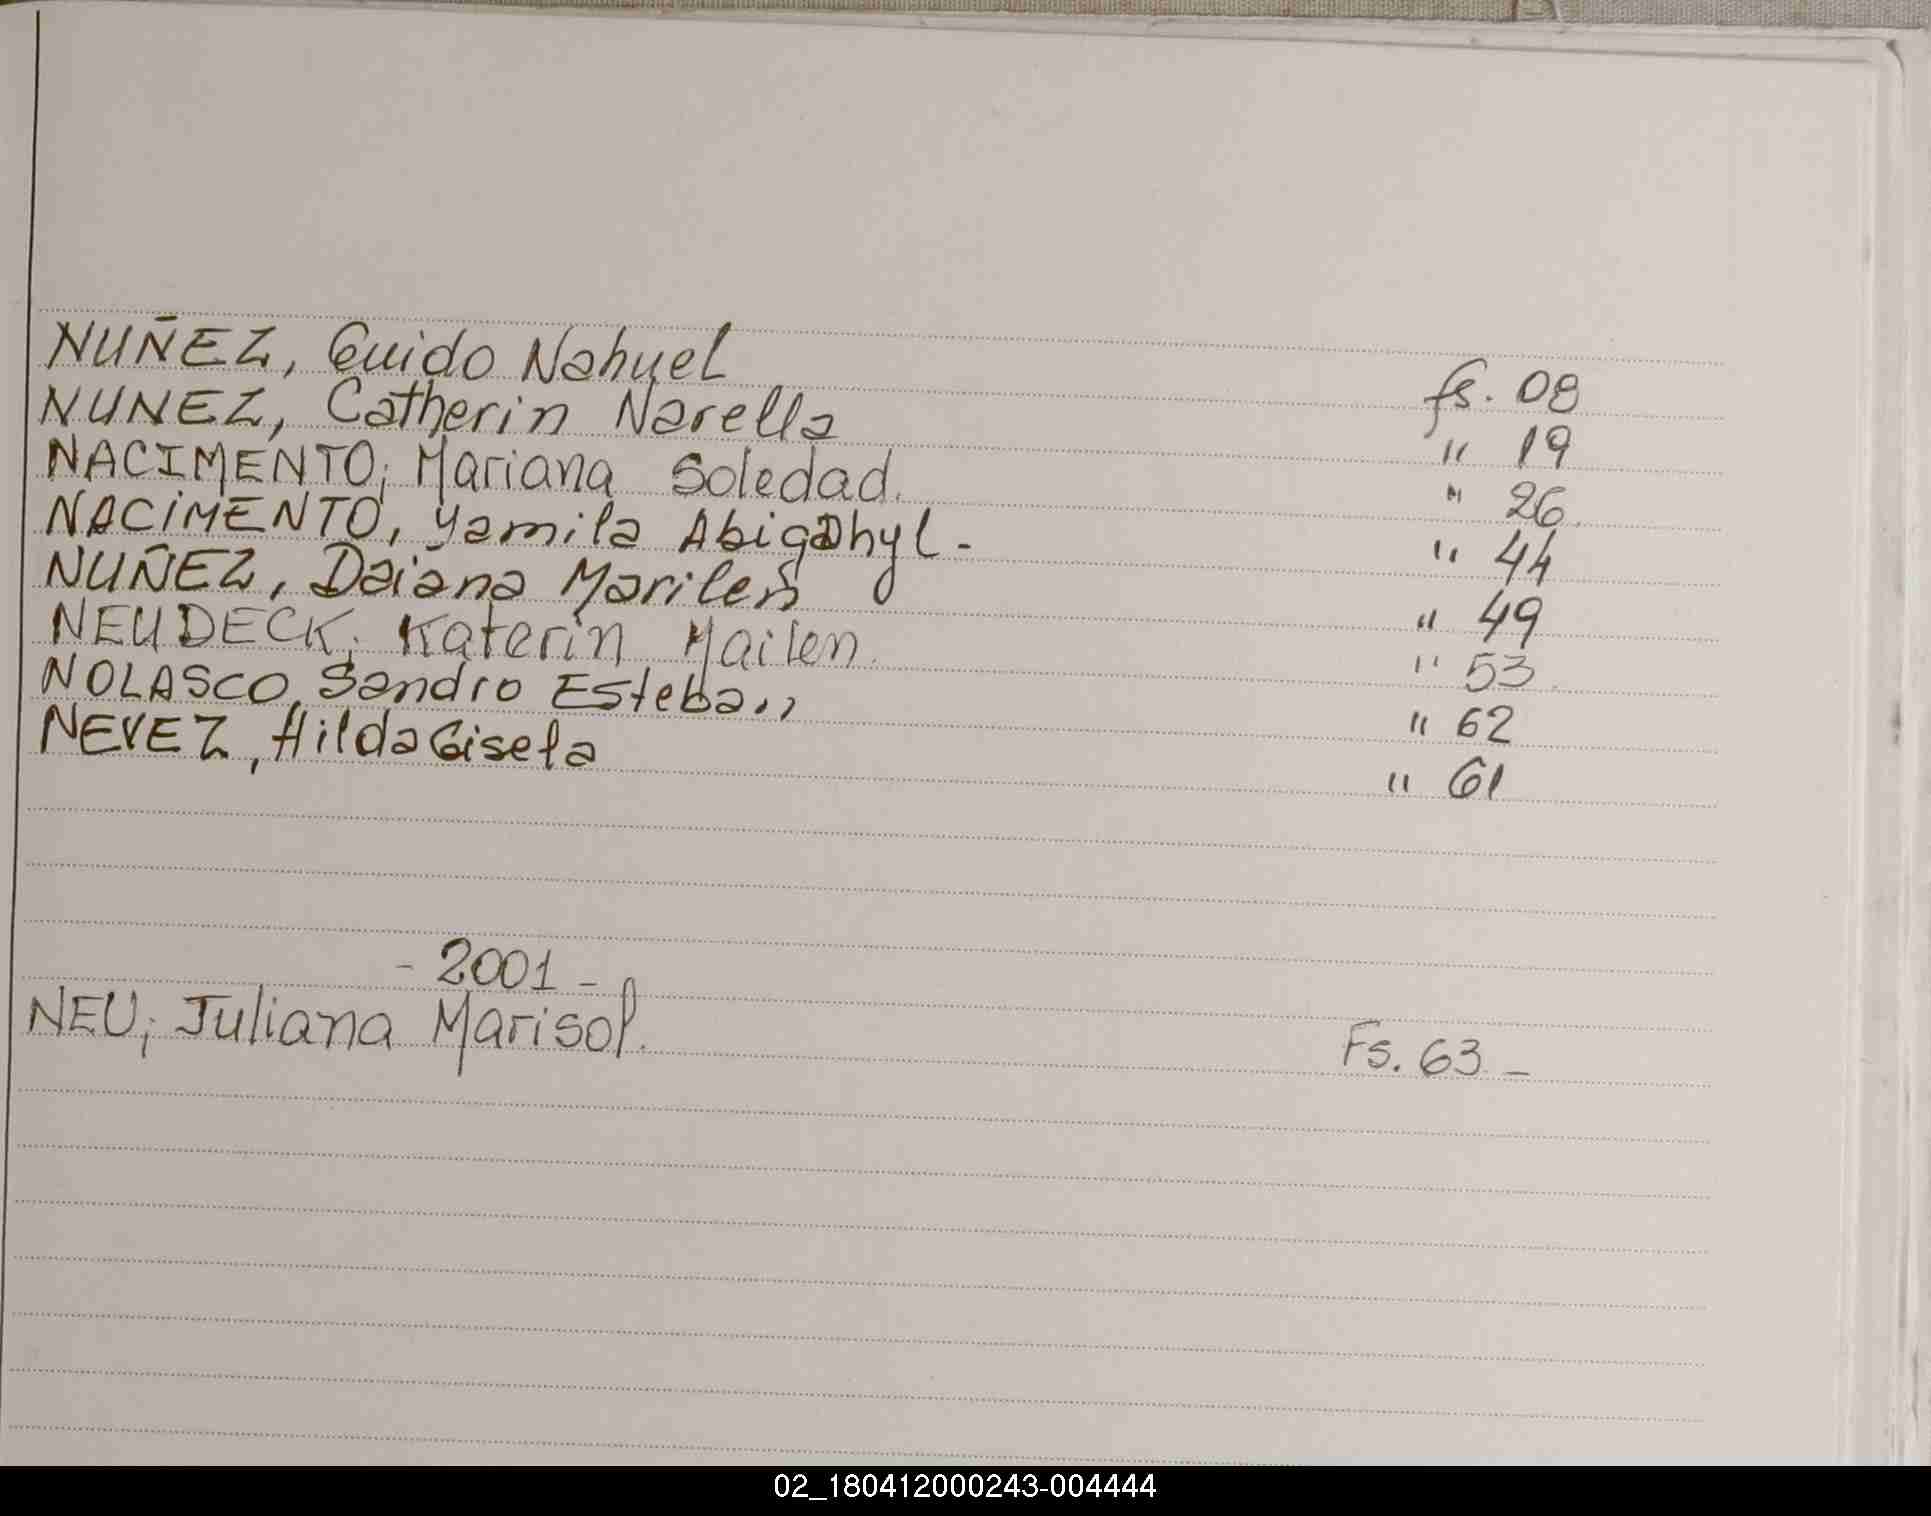 NUÑEZ, Guido Nahuel fs. 08
NUNEZ, Catherin Narella " 19
NACIMENTO; Mariana Soledad. " 26.
NACIMENTO, Yamila Abigahyl - " 44
NUÑEZ, Daiana Marilen " 49
NEUDECK; Katerin Mailen. " 53.
NOLASCO, Sandro Esteban " 62
NEVEZ, Hilda Gisela " 61
- 2001 -
NEU; Juliana Marisol. Fs. 63 -
02_180412000243-004444